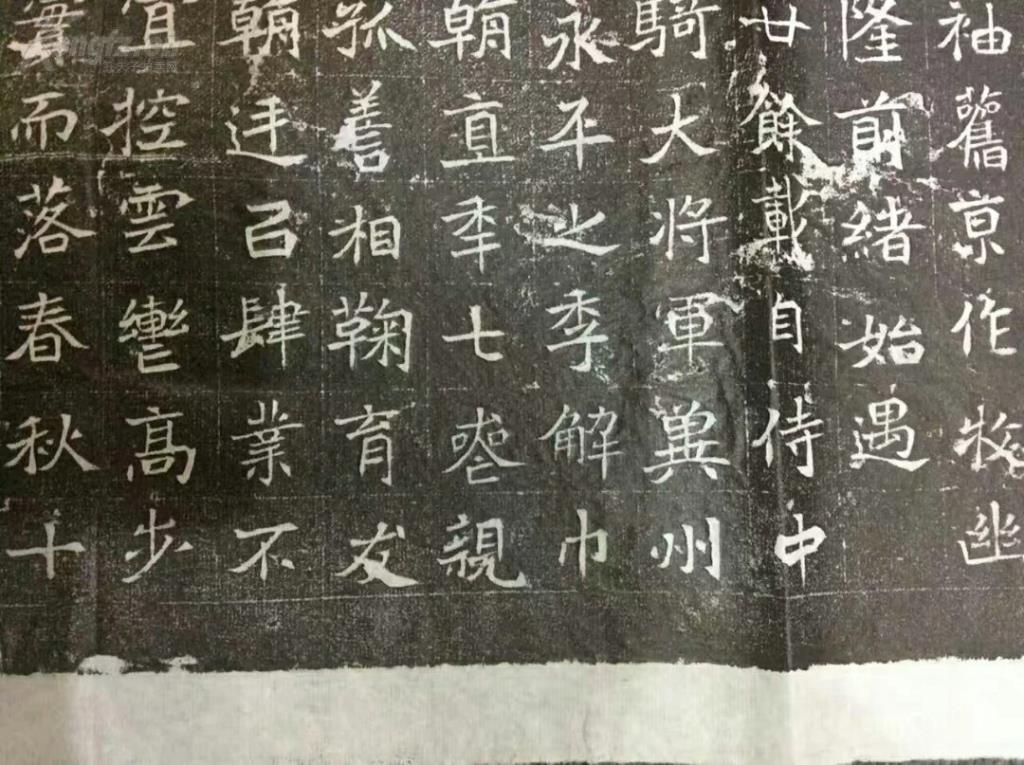 袖舊京作牧幽
隆前緒始遇
廿餘載自侍中
騎大將軍冀州
永平之季解巾
朝直秊七卷親
孤善相鞠育友
朝迋己肆業不
宜控雲轡高步
實而落春秋十